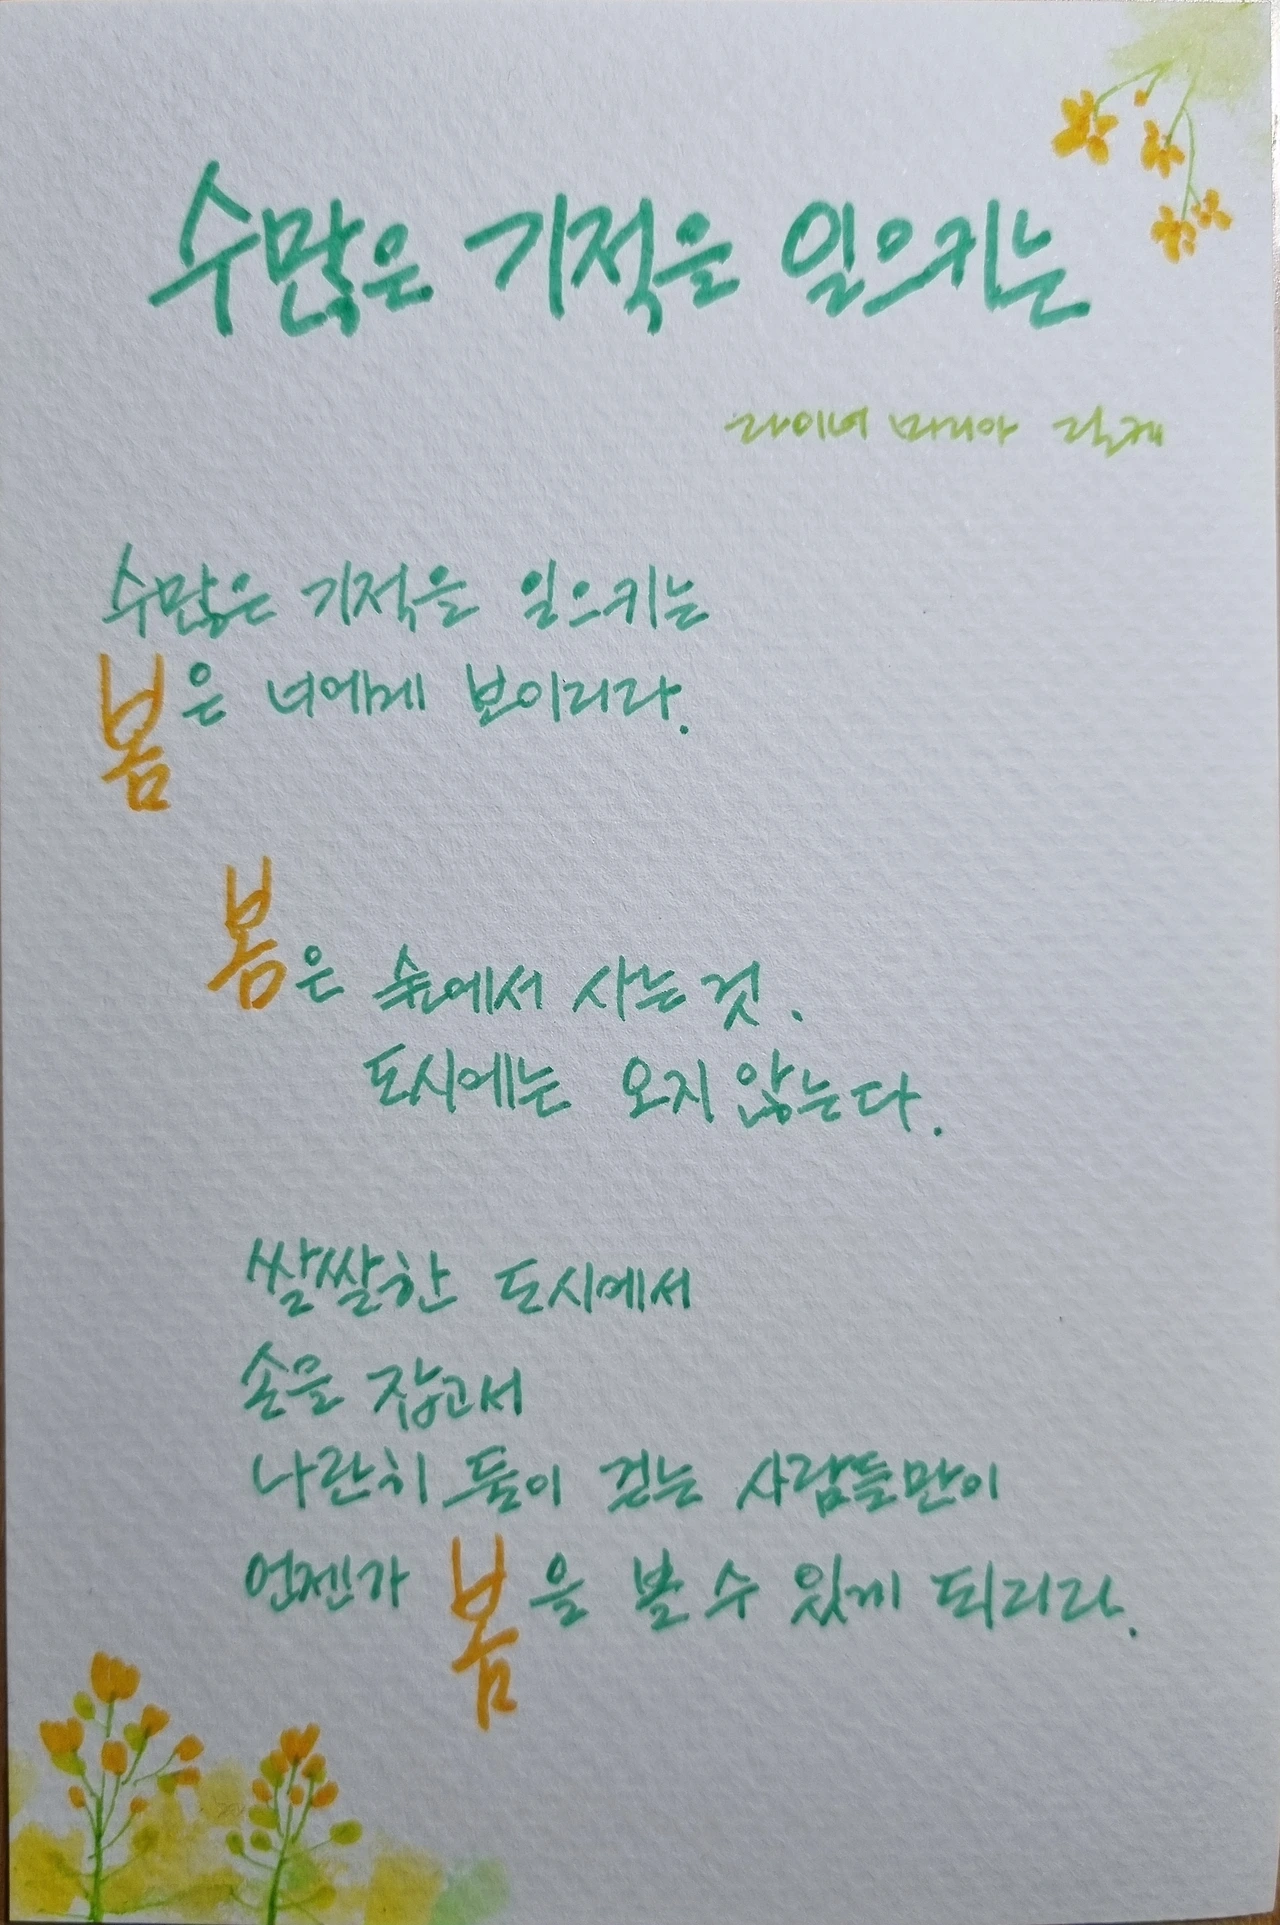 수많은 기적을 일으키는
라이너 마리아 릴케
수많은 기적을 일으키는
봄은 너에게 보이리라.
봄은 숲에서 사는 것.
도시에는 오지 않는다.
쌀쌀한 도시에서
손을 잡고서
나란히 둘이 걷는 사람들만이
언젠가 봄을 볼 수 있게 되리라.